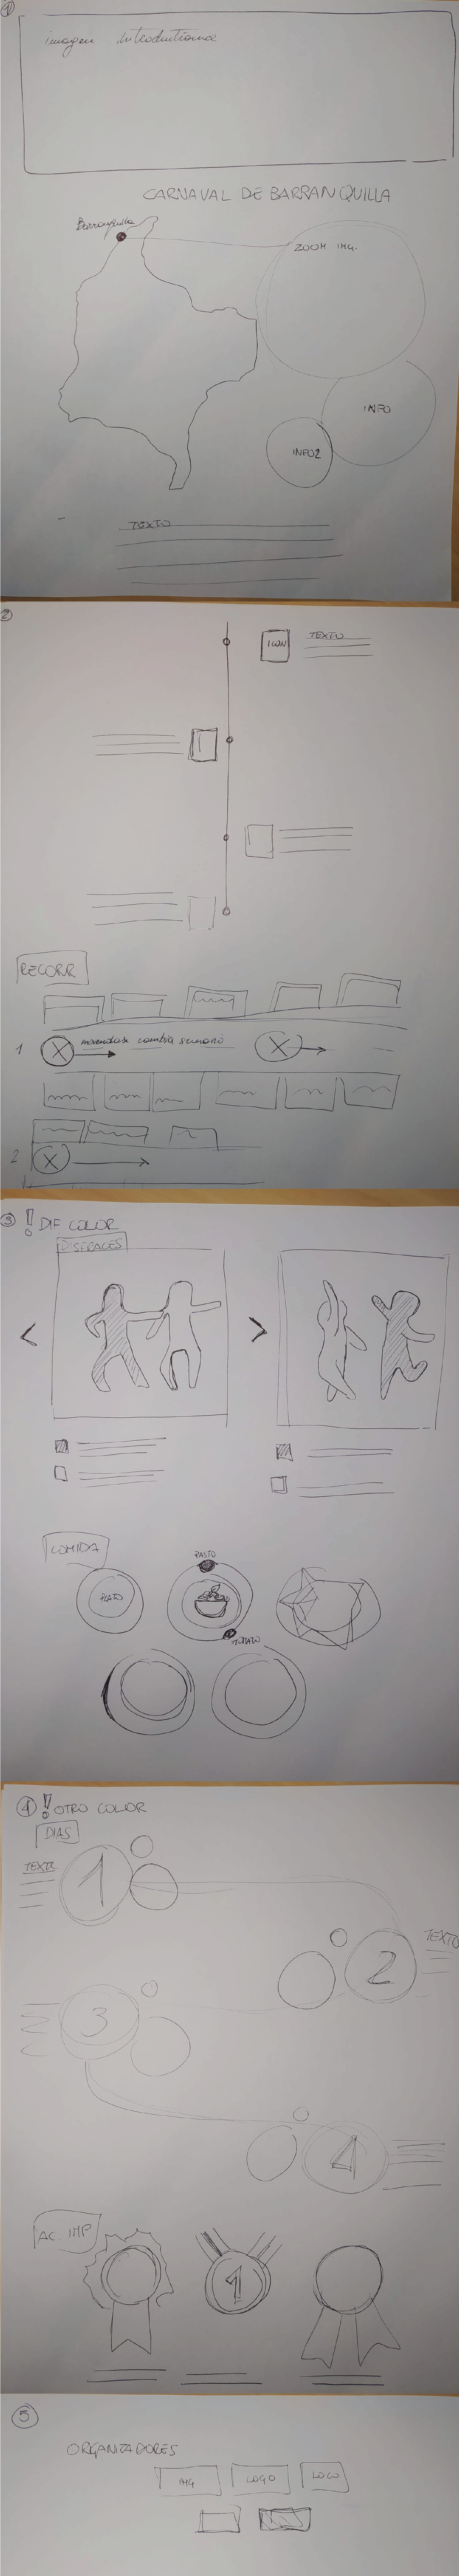 1
imagen introductiona
CARNAVAL DE BARRANQUILLA
Barranquilla
ZOOM IMG.
INFO
INFO2
TEXTO
2
ICON
TEXTO
RECORR
1
X
movendose cambia scenario
X
2
X
3 ! DIF COLOR
DISFRACES
< >
COMIDA
PLATO
PASTO
TOMATO
4 ! OTRO COLOR
DIAS
TEXTO
1
TEXTO
2
3
4
AC. IMP
1
5
ORGANIZADORES
IMG
LOGO
LOGO